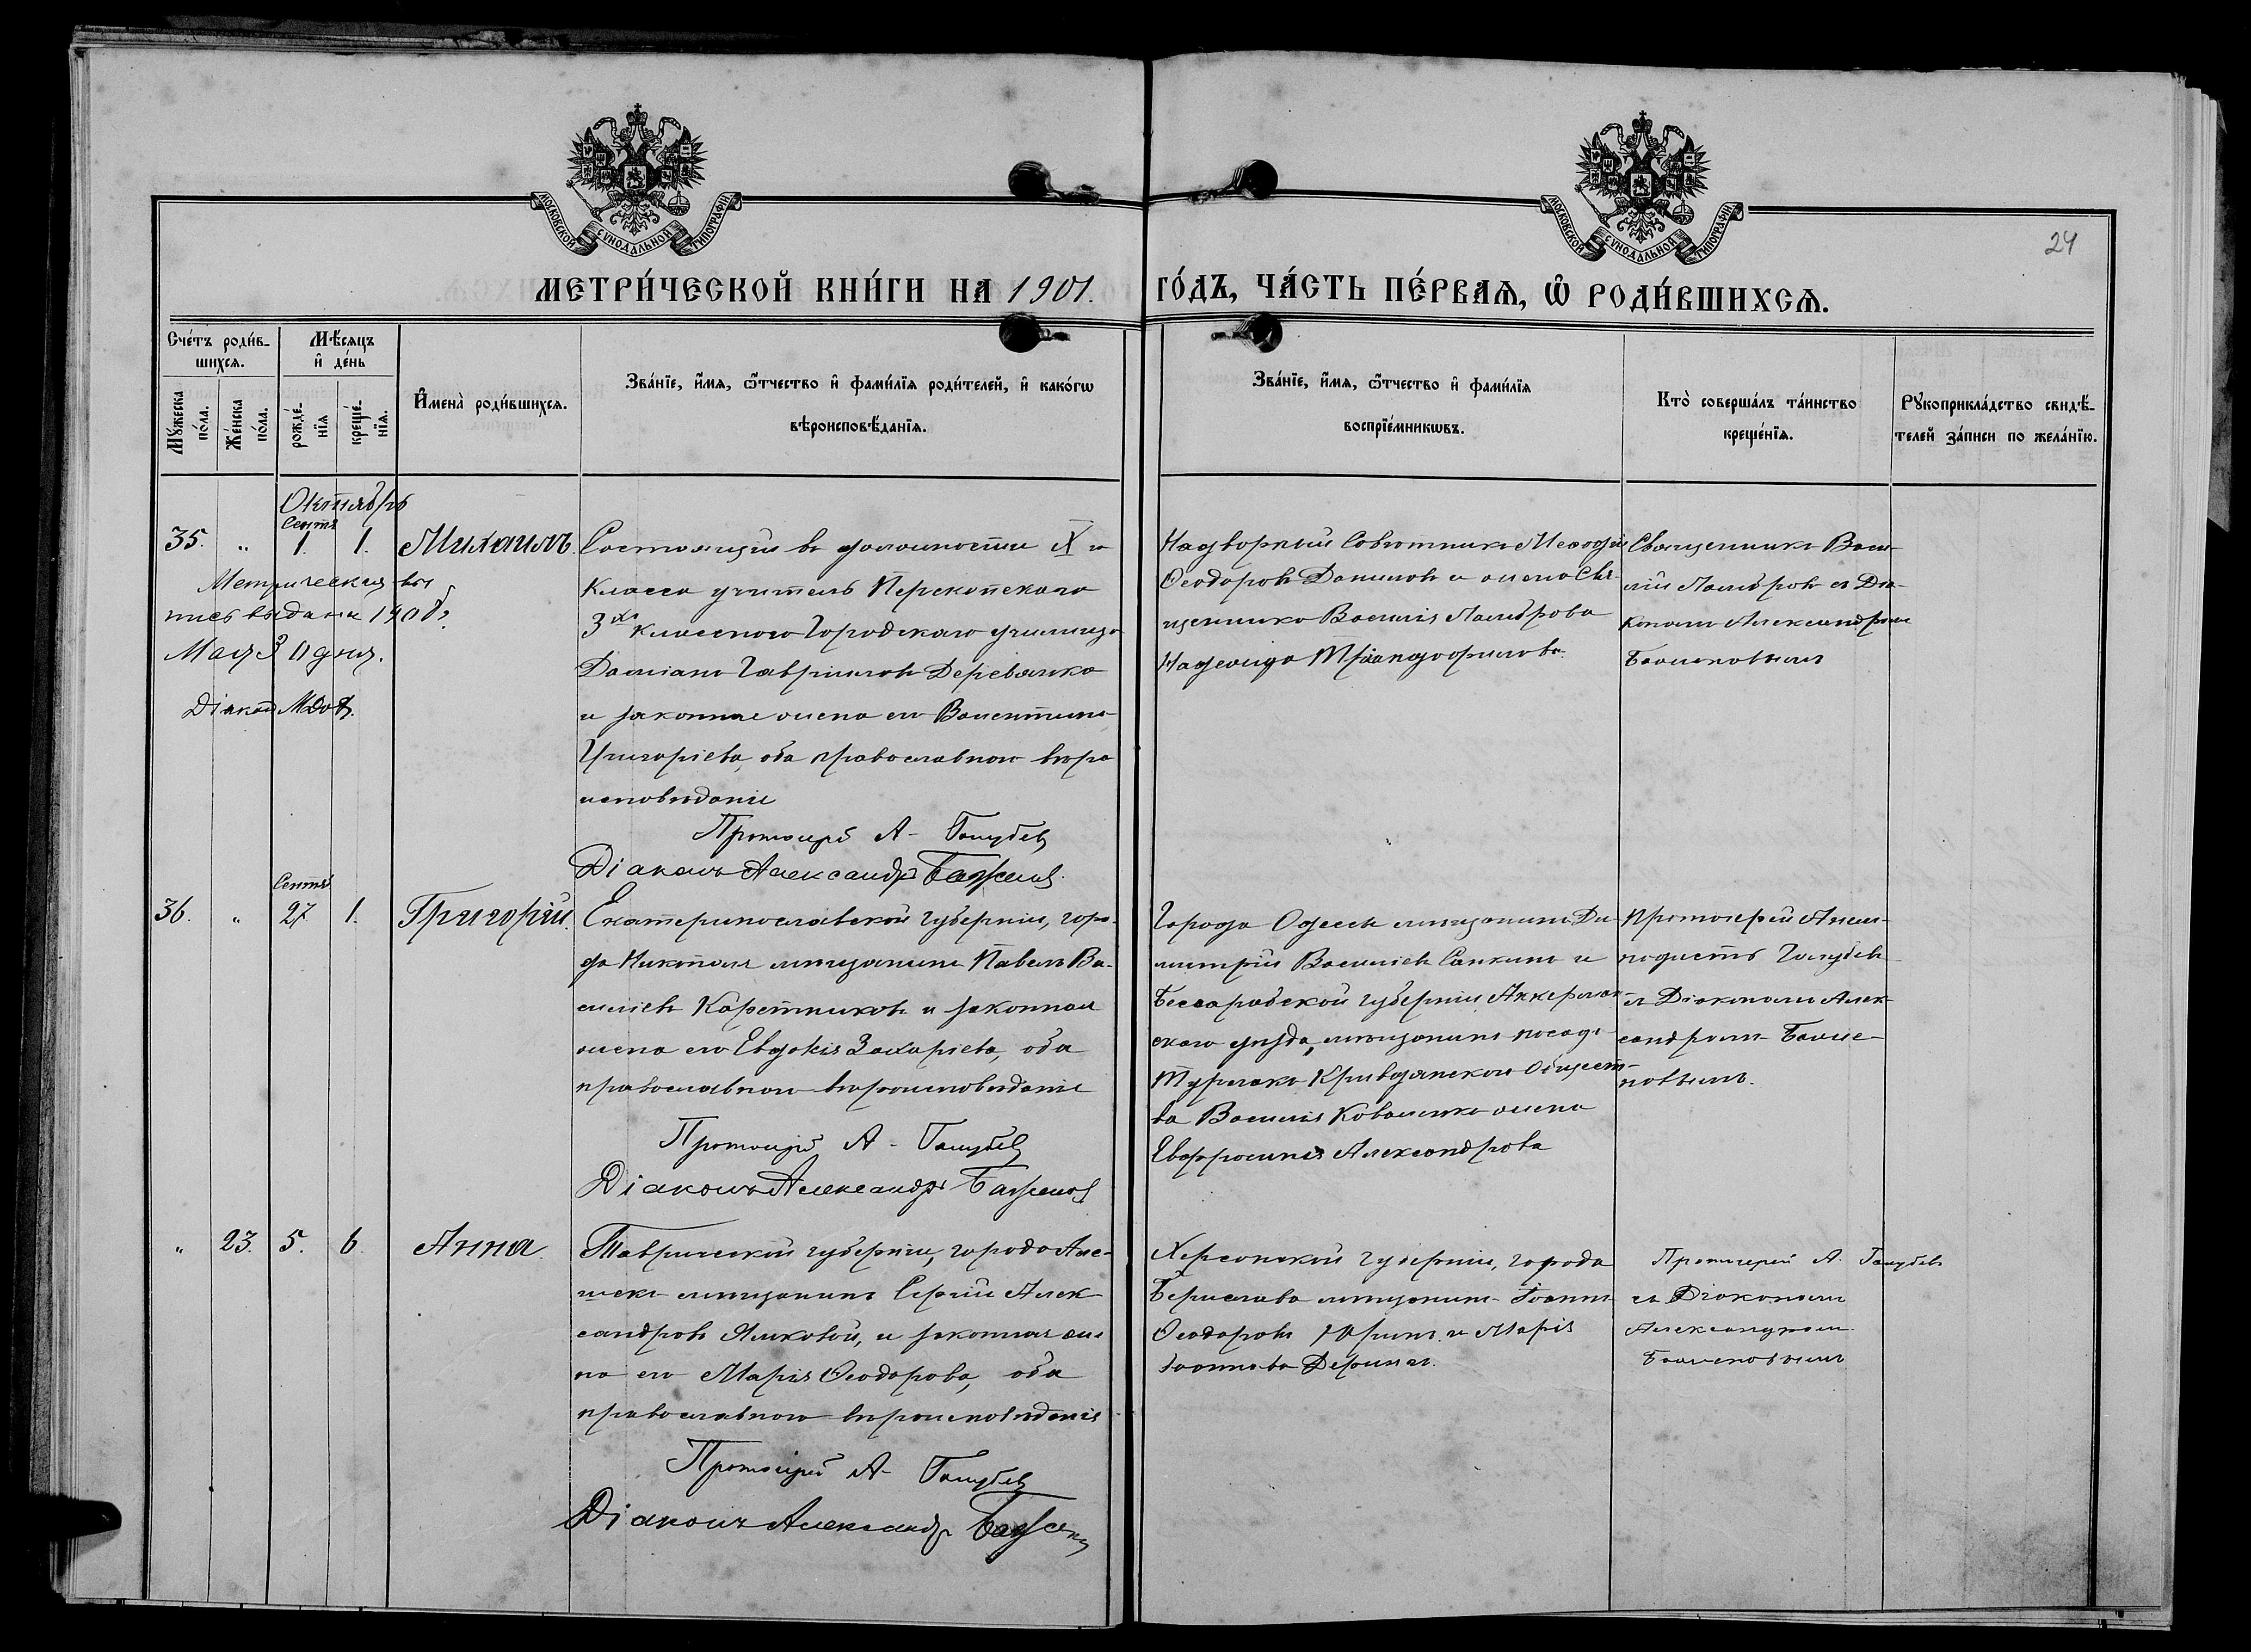 МОСКОВСКОЙ СѴНОДАЛЬНОЙ ТИПОГРАФІИ
МОСКОВСКОЙ СѴНОДАЛЬНОЙ ТИПОГРАФІИ
24
МЕТРИ́ЧЕСКОЙ КНИ́ГИ НА 1901. ГО́ДЪ, ЧА́СТЬ ПЕ́РВАѦ, Ѡ҆ РОДИ́ВШИХСѦ.
Сче́тъ роди́в-
шихсѧ.
Му́жеска по́ла.
Же́нска по́ла.
Мѣ́сяцъ
и҆ де́нь
рожде́-
нїѧ
креще́-
нїѧ.
И҆мена̀ роди́вшихсѧ.
Зва́нїе, и҆́мѧ, ѻ҆́тчество и҆ фами́лїѧ роди́телей, и҆ како́гѡ
вѣроисповѣ́данїѧ.
Зва́нїе, и҆́мѧ, ѻ҆́тчество и҆ фами́лїѧ
воспрїе́мникѡвъ.
Кто̀ соверша́лъ та́инство
креще́нїѧ.
Рꙋкоприкла́дство свидѣ́-
телей за́писи по жела́нїю.
Октябрь
35. " Сентя 1. 1. Михаилъ.
Метрическая вы
пись выдана 190
Мая 11 дня.
Діаконъ
Состоящій въ должности IX
класса учитель Перекопскаго
3хъ класснаго Городского училища
Даміанъ Гавріиловъ Деревянко
и законная жена его Валентина
Григоріева, оба православнаго вѣро
исповѣданія
Протоіерей А. Голубев
Діаконъ Александръ Баженов
Надворный Совѣтникъ Меѳодій
Ѳеодоровъ Даниловъ и жена Свя-
щенника Василія
Надежда Тріандофилова.
Священникъ Васи-
лій съ Діа-
кономъ Александромъ
Баженовымъ
36. " Сентя 27 1. Григорій.
Екатеринославской губерніи, горо-
да Никополя мѣщанинъ Павелъ Ва-
силіевъ Каретниковъ и законная
жена его Евдокія Захаріева, оба
православнаго вѣроисповѣданія
Протоіерей А. Голубев
Діаконъ Александръ Баженов
Города Одессы мѣщанинъ Ди-
митрій Василіевъ Санкинъ и
Бессарабской губерніи Аккерман-
скаго уѣзда, мѣщанина посада
Турлаки Кривдянскаго Общест-
ва Василія Коваленко жена
Евфросинія Александрова
Протоіерей Анем-
подистъ Голубевъ
съ Діакономъ Алек-
сандромъ Баже-
новымъ.
" 23. 5. 6. Анна.
Таврической губерніи, города Але-
шекъ мѣщанинъ Сергій Алек-
сандровъ Яликовой, и законная же
на его Марія Ѳеодорова, оба
православнаго вѣроисповѣданія
Протоіерей А. Голубев
Діаконъ Александръ Баженов
Херсонской губерніи, города
Берислава мѣщанинъ Іоаннъ
Ѳеодоровъ и Марія
Іоаннова
Протоіерей А. Голубевъ
съ Діакономъ
Александромъ
Баженовымъ